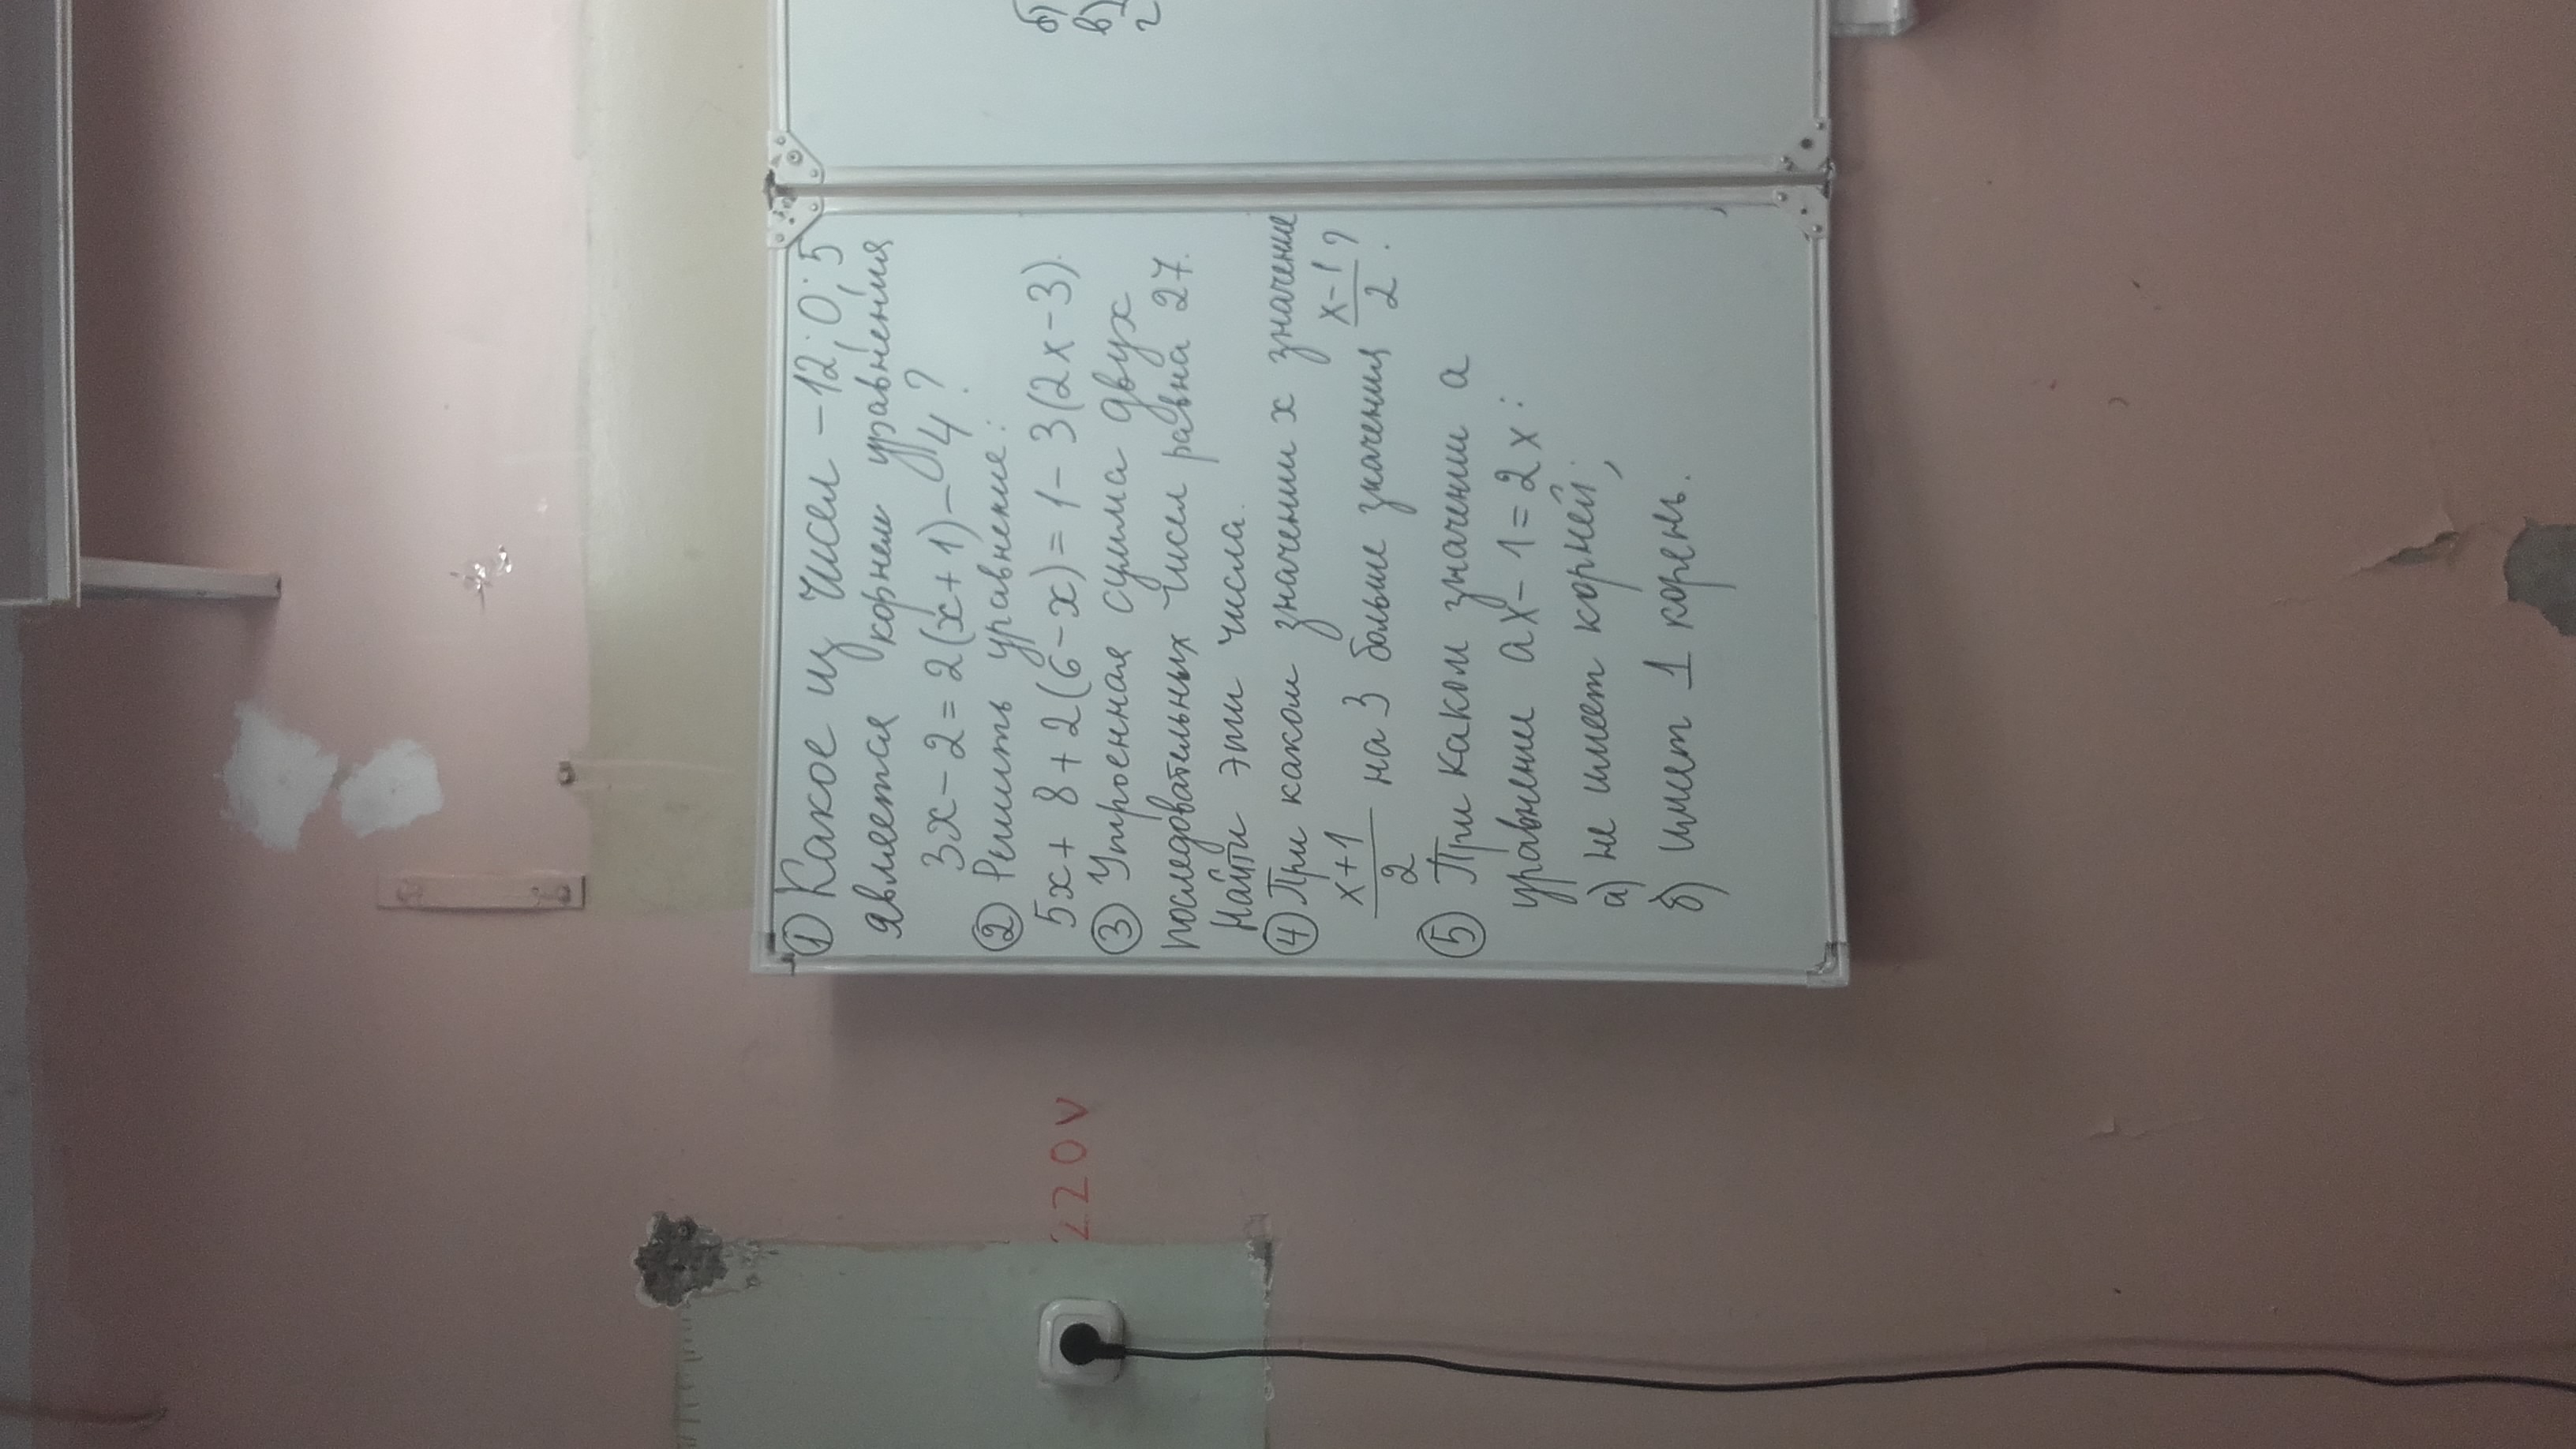 ① Какое из чисел -12; 0; 5
является корнем уравнения
3x - 2 = 2(x + 1) - 4?
② Решить уравнение:
5x + 8 + 2(6 - x) = 1 - 3(2x - 3).
③ Утроенная сумма двух
последовательных чисел равна 27.
Найти эти числа.
④ При каком значении x значение
x+1/2 на 3 больше значения x-1/2?
⑤ При каком значении a
уравнение ax - 1 = 2x:
а) не имеет корней;
б) имеет 1 корень.
б)
в)
220V